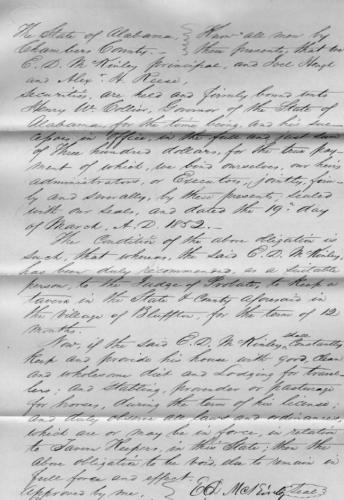 The State of Alabama, Know all men by
Chambers County. these presents, that we
E. D. McKinley principal, and Joel
and Alexr. H. Reese
Securities, are held and firmly bound unto
Henry W. Collier, Governor of the State of
Alabama, for the time being, and his suc-
cessors in office, in the full and just sum
of Three hundred dollars, for the true pay-
ment of which, we bind ourselves, our heirs
administrators, or Executors, jointly, firm-
ly and severally, by these presents, sealed
with our seals, and dated the 19th day
of March, A.D. 1852.
The Condition of the above obligation is
such, that whereas, the said E. D. McKinley,
has been duly recommended, as a suitable
person, to the Judge of Probate, to keep a
Tavern in the State & County aforesaid in
the Village of Bluffton, for the term of 12
months.
Now, if the said E. D. McKinley, shall Constantly
Keep and provide his house with good, clean
and wholesome diet and Lodging for travel-
lers; and Stabling, provender or pasturage
for horses, during the term of his license;
and duly observe all laws and ordinances,
which are or may be in force, in relation
to Tavern Keepers, in this State; then the
above obligation to be void, else to remain in
full force and effect.
Approved by me, E D McKinley Seal